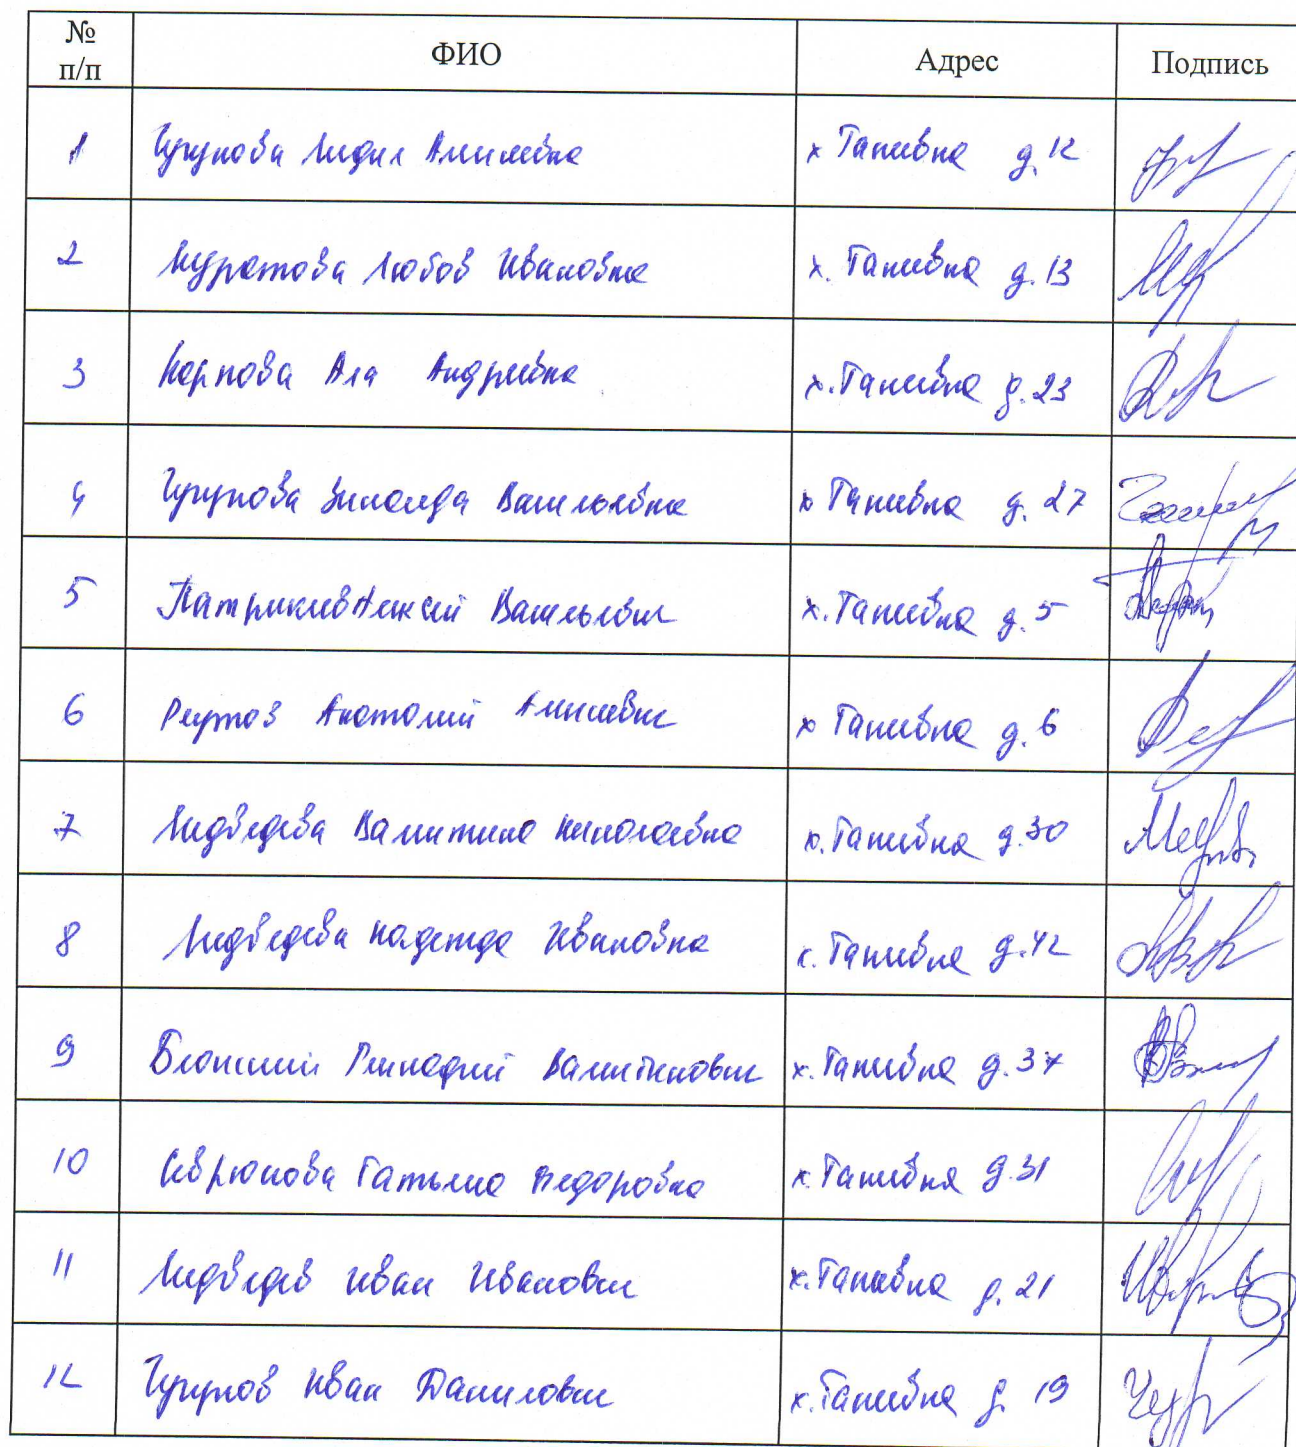 № п/п ФИО Адрес Подпись
1 Чугунова Лидия Алексеевна х Ганеевка д. 12
2 Муратова Любов Ивановна х. Ганеевка д. 13
3 Карпова Ала Андреевна х. Ганеевка д. 23
4 Чугунова Зинаида Васильевна х Ганеевка д. 27
5 Патрикеев Алексей Васильевич х. Ганеевка д. 5
6 Реутов Анатолий Алексеевич х Ганеевка д. 6
7 Медведева Валентина Николаевна х. Ганеевка д. 30
8 Медведева Надежда Ивановна х. Ганеевка д. 42
9 Генадий Валентинович х. Ганеевка д. 37
10 Севрюкова Татьяна Федоровна х. Ганеевка д. 31
11 Медведев Иван Иванович х. Ганеевка д. 21
12 Чугунов Иван Данилович х. Ганеевка д. 19